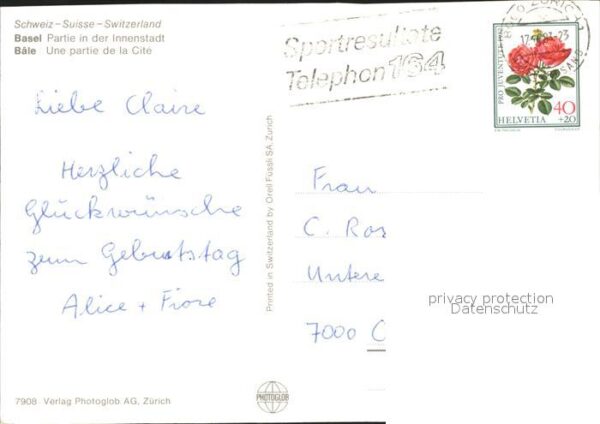 Schweiz – Suisse – Switzerland
Basel Partie in der Innenstadt
Bâle Une partie de la Cité
Sportresultate
Telephon 164
PRO JUVENTUTE
40
+20
HELVETIA
Liebe Claire
Herzliche
Glückwünsche
zum Geburtstag
Alice + Fiore
Printed in Switzerland by Orell Füssli SA, Zürich
Frau
C. Ros
Untere
7000 C
privacy protection
Datenschutz
PHOTOGLOB
7908 Verlag Photoglob AG, Zürich